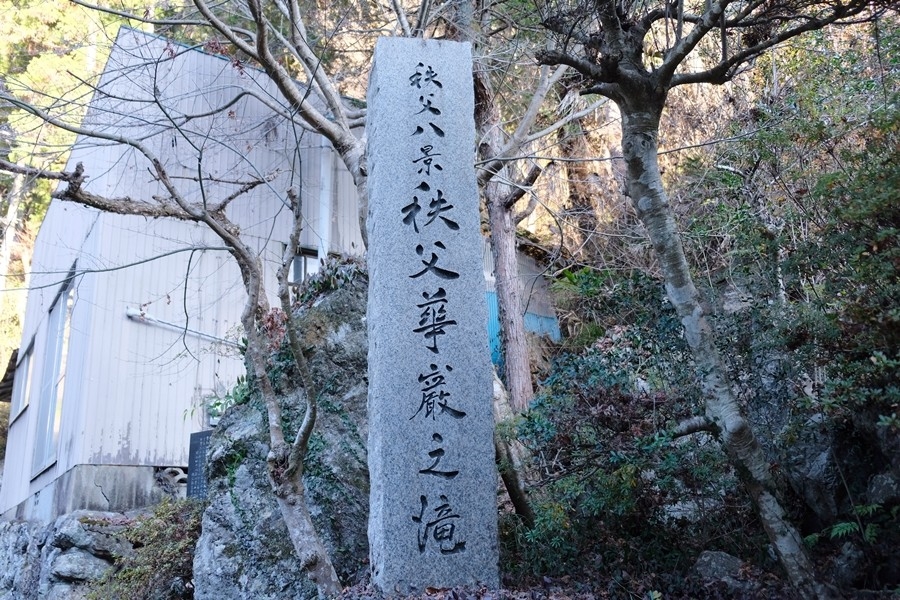 秩父八景秩父華厳之滝